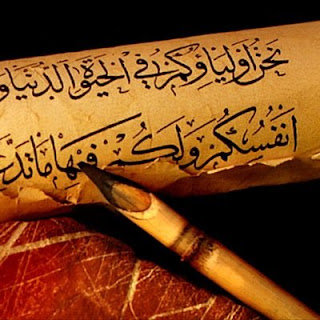 نَحْنُ أَوْلِيَاؤُكُمْ فِي الْحَيَوٰةِ الدُّنْيَا وَ
أَنْفُسُكُمْ وَلَكُمْ فِيهَا مَا تَدَّعُ